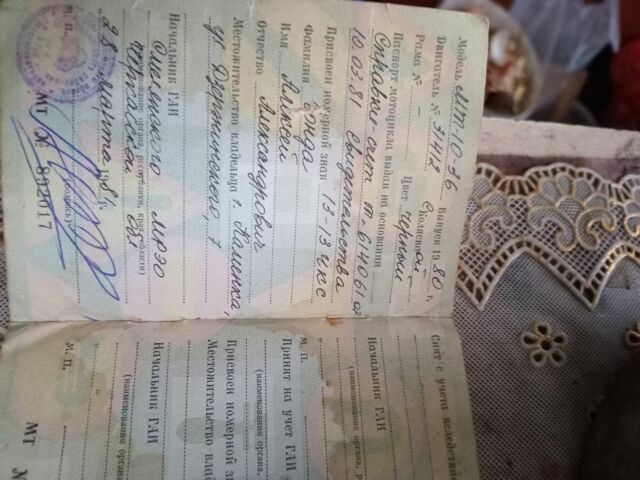 Модель МТ-10-36 Выпуск 1980 г.
Двигатель № 31412 С коляской
Рама № — Цвет черный
Паспорт мотоцикла выдан на основании
Справки-счет
10.03.81 свидетельства
Присвоен номерной знак 13-13 чкс
Фамилия
Имя Алексей
Отчество Александрович
Местожительство владельца г. Каменка,
ул Дзержинского, 7
Начальник ГАИ МРЭО
(наименование органа, республики, края, области)
Черкасской обл
м. п. (подпись)
"28" марта 1981 г.
МТ № 892017
Снят с учета вследствие
Начальник ГАИ
(наименование органа, р
м. п.
Принят на учет ГАИ
(наименование органа,
Присвоен номерной зн
Местожительство влад
Начальник ГАИ
(наименование орган
м. п.
МТ №